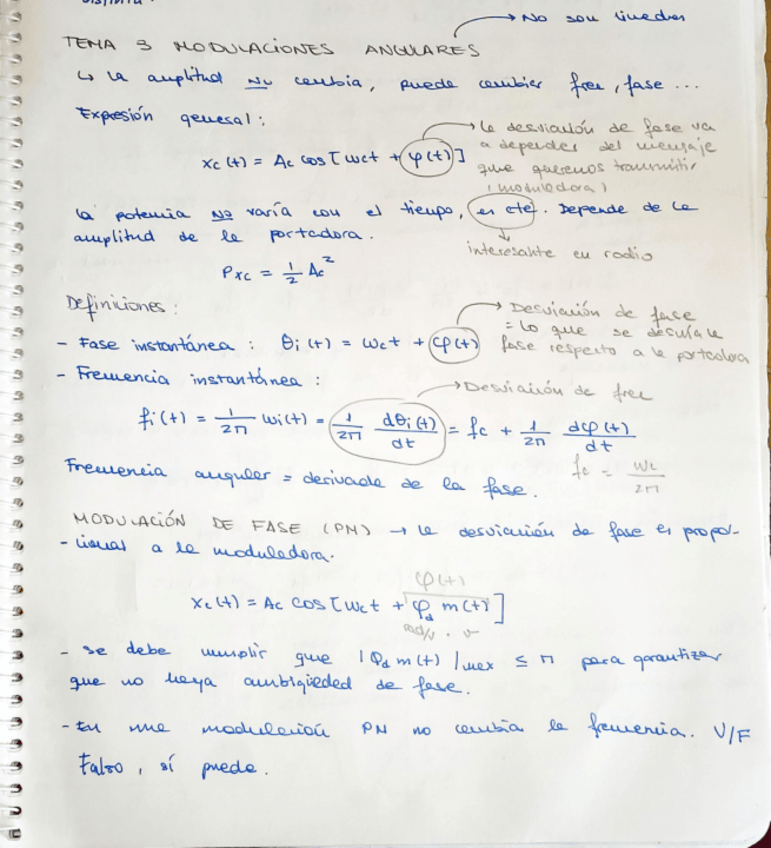 → No son lineales
TEMA 3 MODULACIONES ANGULARES
↳ la amplitud NO cambia, puede cambiar frec, fase ...
Expresión general:
→ la desviación de fase va
a depender del mensaje
que queremos transmitir
(moduladora)
xc(t) = Ac cos[ωct + φ(t)]
la potencia NO varía con el tiempo, es cte. Depende de la
amplitud de la portadora.
interesante en radio
Pxc = 1/2 Ac²
Definiciones:
→ Desviación de fase
= lo que se desvía la
fase respecto a la portadora
- Fase instantánea : θi(t) = ωct + φ(t)
- Frecuencia instantánea :
→ Desviación de frec
fi(t) = 1/2π ωi(t) = 1/2π dθi(t)/dt = fc + 1/2π dφ(t)/dt
fc = ωc/2π
Frecuencia angular = derivada de la fase.
MODULACIÓN DE FASE (PM) → la desviación de fase es propor-
-cional a la moduladora.
φ(t)
xc(t) = Ac cos[ωct + φd m(t)]
rad/v · v
- Se debe cumplir que |φd m(t)|max ≤ π para garantizar
que no haya ambigüedad de fase.
- En una modulación PM no cambia la frecuencia. V/F
Falso, sí puede.